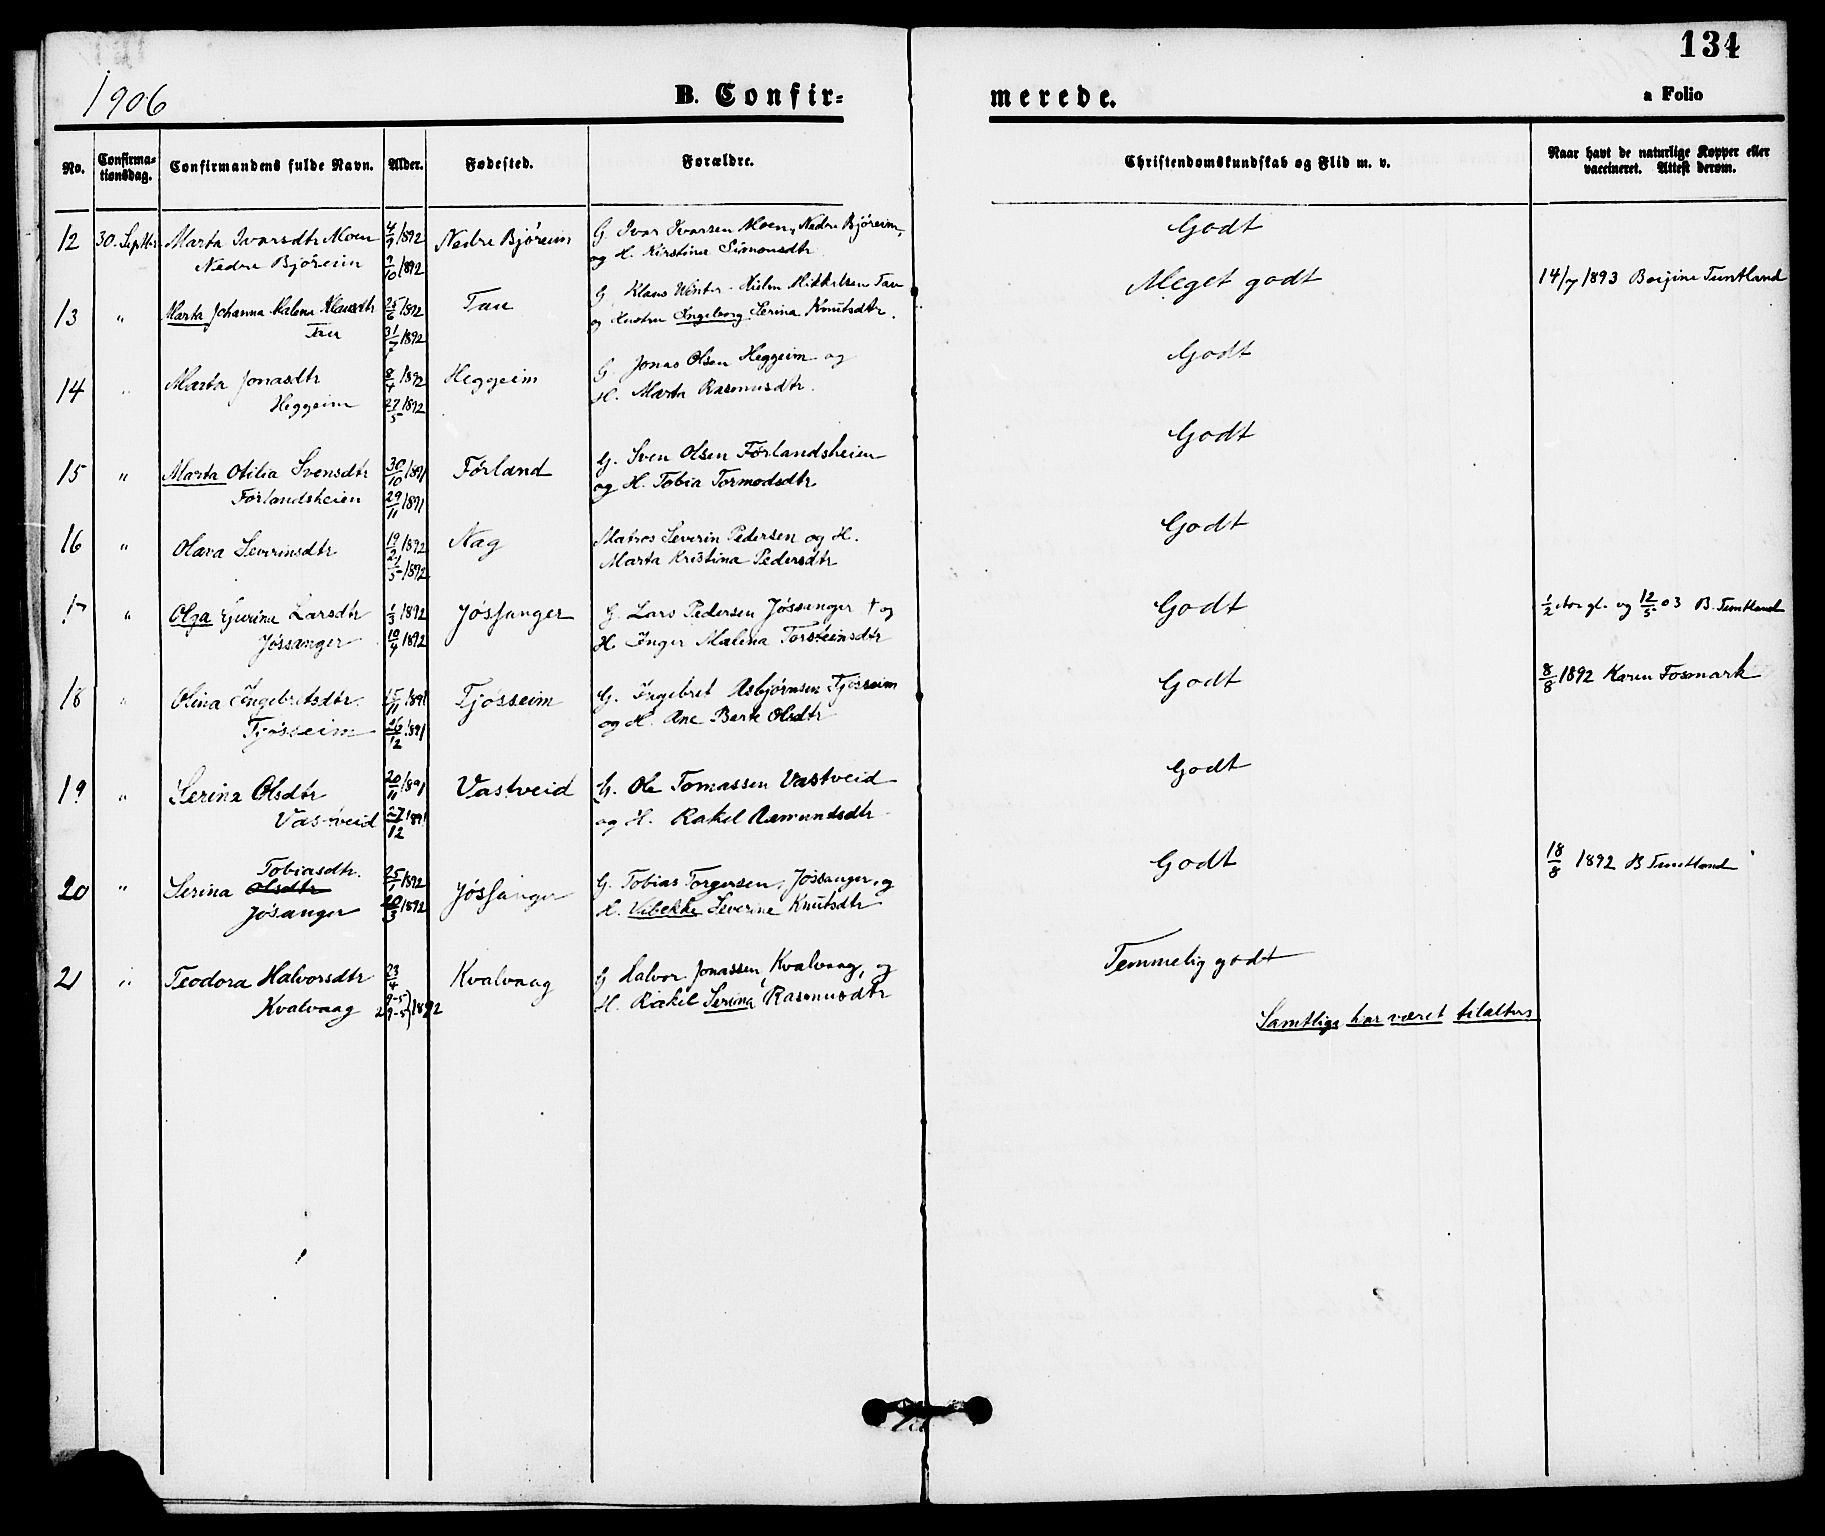 134
1906
B. Confir=
merede.
a Folio
No.
Confirma=
tionsdag.
Confirmandens fulde Navn.
Alder.
Fødested.
Forældre.
Christendomskundskab og Flid m. v.
Naar havt de naturlige Kopper eller
vaccineret. Attest derom.
12 30. Septbr Marta Ivarsdtr Moen 4/9 1892 Nedre Björeim G. Ivar Ivarsen Moen, Nedre Björeim, Godt
Nedre Björeim 9/10 1892 og H. Kirstine Simonsdtr
13 " Marta Johanna Malena Klausdtr 25/6 1892 Tau G. Klaus Winter-Hielm Mikkelsen Tau Meget godt 14/7 1893 Borgine Tuntland
Tau 31/7 1892 og Hustru Ingeborg Serina Knutsdtr.
14 " Marta Jonasdtr 8/4 1892 Heggeim G. Jonas Olsen Heggeim og Godt
Heggeim 27/5 1892 H. Marta Rasmusdtr.
15 " Marta Otilia Svensdtr 30/10 1891 Förland G. Sven Olsen Förlandsheien Godt
Förlandsheien 29/11 1891 og H. Tobia Tormodsdtr
16 " Olava Severinsdtr 19/2 1892 Nag Matros Severin Pedersen og H. Godt
1892 Marta Kristina Pedersdtr
17 " Olga Gurina Larsdtr 1/3 1892 Jössanger G. Lars Pedersen Jössanger † og Godt 1/2 Aar gl. og 12/5 03 B. Tuntland
Jössanger 10/4 1892 H Inger Malena Torsteinsdtr
18 " Olina Ingebretsdtr 15/11 1891 Tjösseim G. Ingebret Asbjørnsen Tjösseim Godt 8/8 1892 Karen Fosmark
Tjösseim 26/12 1891 og H. Ane Berte Olsdtr
19 " Serina Olsdtr 20/11 1891 Vastveid G. Ole Tomassen Vastveid Godt
Vastveid 27/12 1891 og H. Rakel Asmundsdtr
Tobiasdtr.
20 " Serina Olsdtr 25/1 1892 Jössanger G. Tobias Torgersen, Jössanger, og Godt 18/8 1892 B Tuntland
Jösanger 20/3 1892 H. Vibekke Severine Knutsdtr
21 " Teodora Halvorsdtr 23/4 Kvalvaag G Halvor Jonassen, Kvalvaag, og Temmelig godt
Kvalvaag 29-5 1892 H. Rakel Serina Rasmusdtr
Samtlige har været tilalters